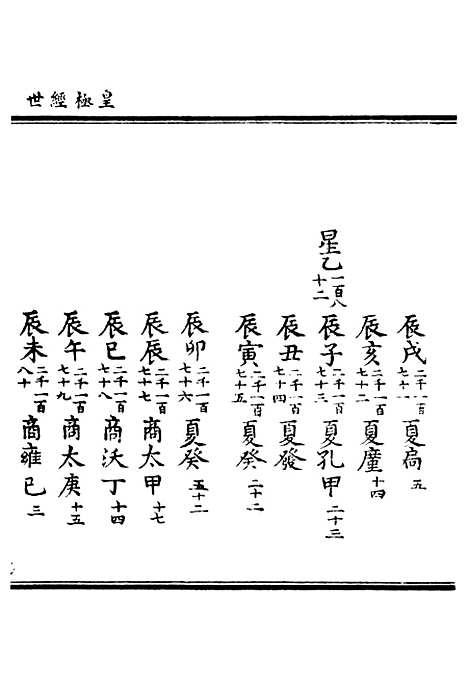 皇極經世
辰戌二千一百七十一夏扃五
辰亥二千一百七十二夏廑十四
星乙一百八十二辰子二千一百七十三夏孔甲二十三
辰丑二千一百七十四夏發
辰寅二千一百七十五夏癸二十二
辰卯二千一百七十六夏癸五十二
辰辰二千一百七十七商太甲十七
辰巳二千一百七十八商沃丁十四
辰午二千一百七十九商太庚十五
辰未二千一百八十商雍己三